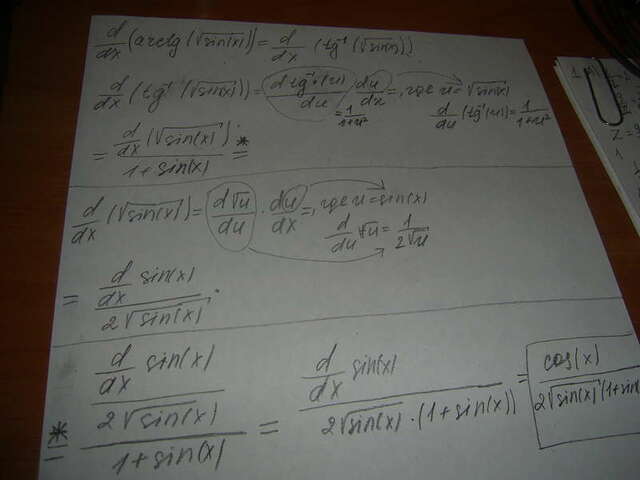 d/dx (arctg(√sin(x))) = d/dx (tg⁻¹(√sin(x)))
d/dx (tg⁻¹(√sin(x))) = d tg⁻¹(u)/du · du/dx =, где u = √sin(x)
= 1/1+u² d/du (tg⁻¹(u)) = 1/1+u²
= d/dx (√sin(x)) / 1+sin(x) * =
d/dx (√sin(x)) = d√u/du · du/dx =, где u = sin(x)
d/du √u = 1/2√u
= d/dx sin(x) / 2√sin(x) .
* = d/dx sin(x) / 2√sin(x) / 1+sin(x) = d/dx sin(x) / 2√sin(x) · (1+sin(x)) = cos(x) / 2√sin(x) (1+sin